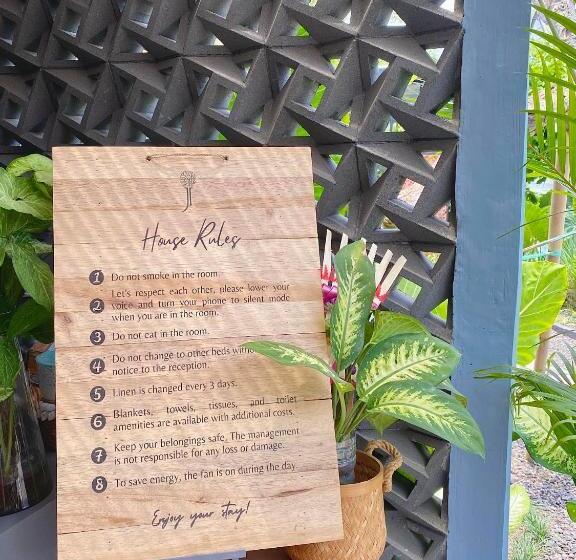 House Rules
1 Do not smoke in the room
2 Let's respect each other, please lower your
voice and turn your phone to silent mode
when you are in the room.
3 Do not eat in the room.
4 Do not change to other beds
notice to the reception.
5 Linen is changed every 3 days.
6 Blankets, towels, tissues, and toilet
amenities are available with additional costs.
7 Keep your belongings safe. The management
is not responsible for any loss or damage.
8 To save energy, the fan is on during the day
Enjoy your stay!